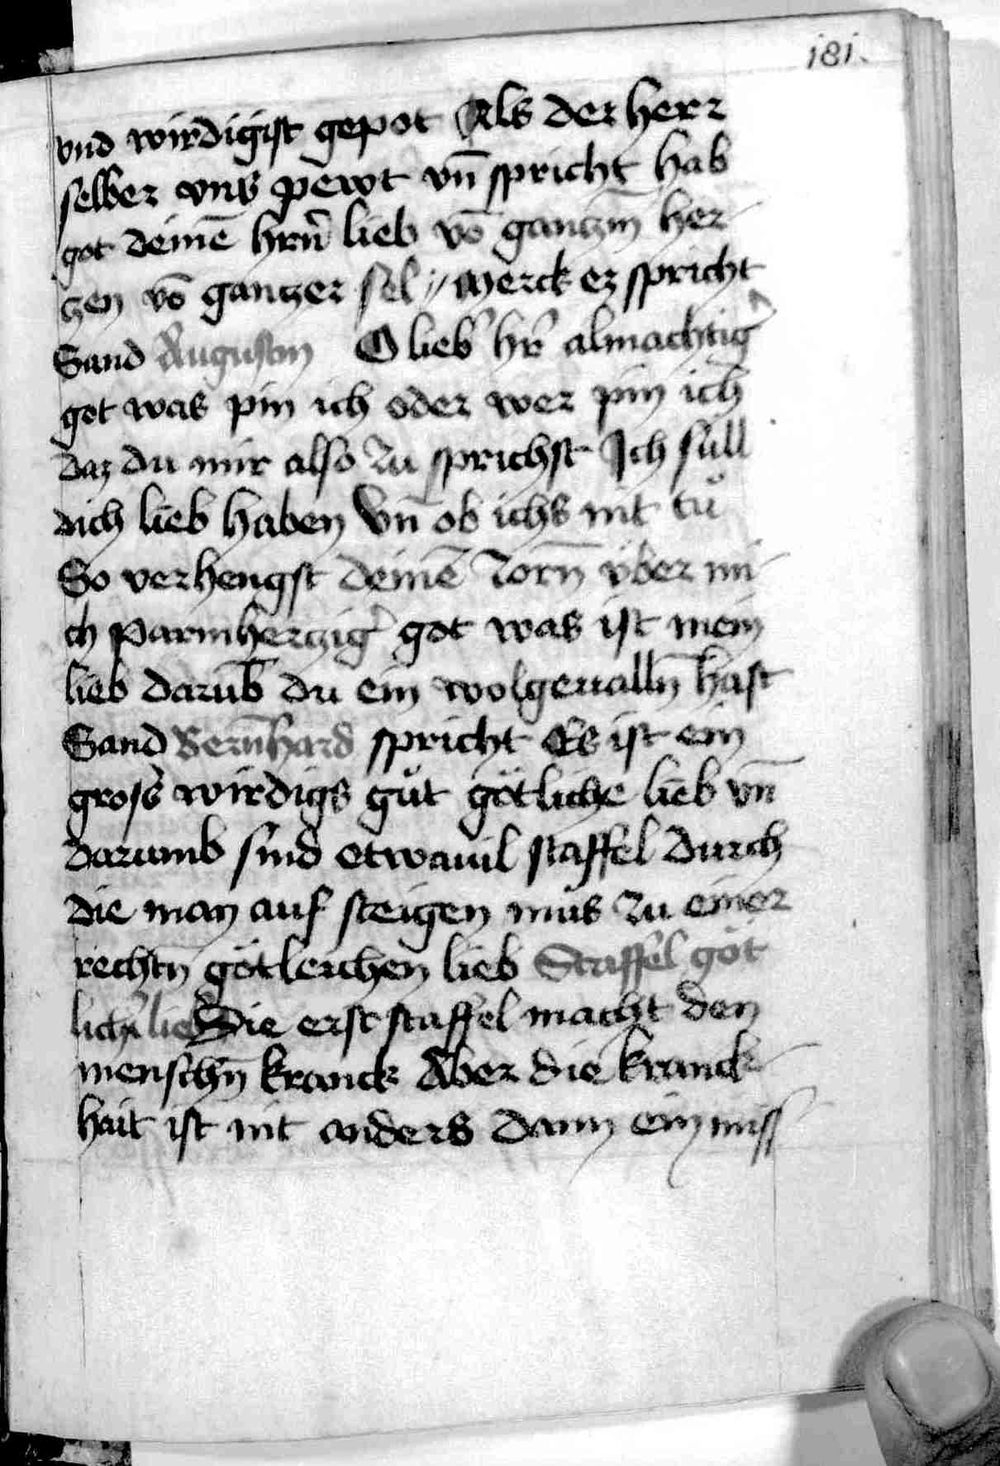 181.
vnd wirdigist gepot Als der herr
selber vns pewt vn̄ spricht hab
got deinē hrn̄ lieb vō gantzm̄ her
tzen vō gantzer sel // Merck ez spricht
Sand Augustin O lieb͛ hr͛ almachtig͛
got was pin ich oder wer pin ich
daz du mir also zu sprichst Ich sull
dich lieb haben Vn̄ ob ichs nit tů
So verhengst deinē zorn̄ vber mi
ch parmhertzig͛ got was ist mein
lieb darūb du ein wolgeualln̄ hast
Sand Bern̄hard spricht Es ist ein
gross͛ wirdigs gůt götliche lieb vn̄
darumb sind etwauil staffel durch
die man auf steigen můs zu einer
rechtn̄ götleichen lieb Staffel göt
lich͛ lieb Die erst staffel macht den
menschn̄ kranck Aber die kranck
hait ist nit anders dann ein miss